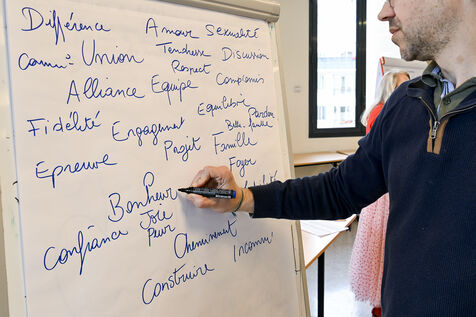 Différence
Amour Sexualité
Union
Tendresse Discussion
Respect
Alliance Equipe Compromis
Equilibre
Fidélité Engagement
Pardon
Belle-famille
Projet Famille
Epreuve
Foyer
Bonheur
Joie
Confiance
Peur
Cheminement
Inconnu
Construire